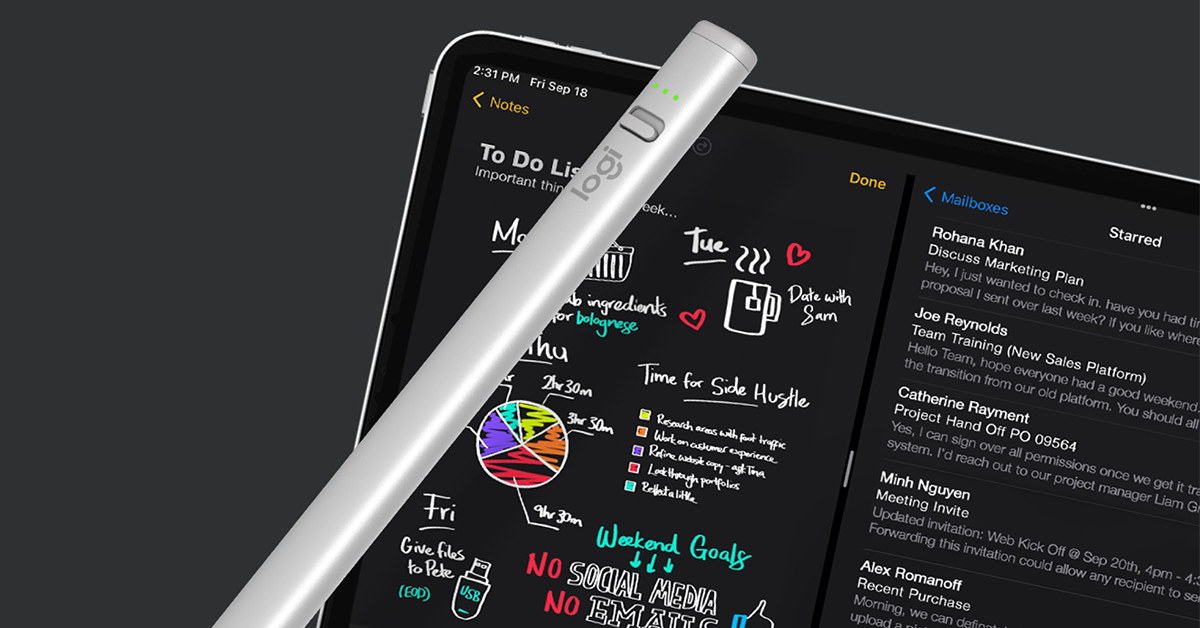 2:31 PM Fri Sep 18
Notes
logi
To Do Lis
Important thin
eek...
Done
Mo
ingredients
for bolognese
Tue
Date with
Sam
Thu
hr
2hr 30m
3hr 30m
9hr 30m
Time for Side Hustle
Research areas with foot traffic
Work on customer experience
Refine website copy - ask Tina
Look through portfolios
Reflect a little
Fri
Give files
to Pete
(EOD)
USB
Weekend Goals
NO SOCIAL MEDIA
NO EMAILS
Mailboxes
Starred
Rohana Khan
Discuss Marketing Plan
Hey, I just wanted to check in. have you had ti
proposal I sent over last week? If you like where
Joe Reynolds
Team Training (New Sales Platform)
Hello Team, hope everyone had a good weekend
the transition from our old platform. You should all
Catherine Rayment
Project Hand Off PO 09564
Yes, I can sign over all permissions once we get it tra
system. I'd reach out to our project manager Liam G
Minh Nguyen
Meeting Invite
Updated invitation: Web Kick Off @ Sep 20th, 4pm - 4:3
Forwarding this invitation could allow any recipient to se
Alex Romanoff
Recent Purchase
Morning, we can definat
upload a pi